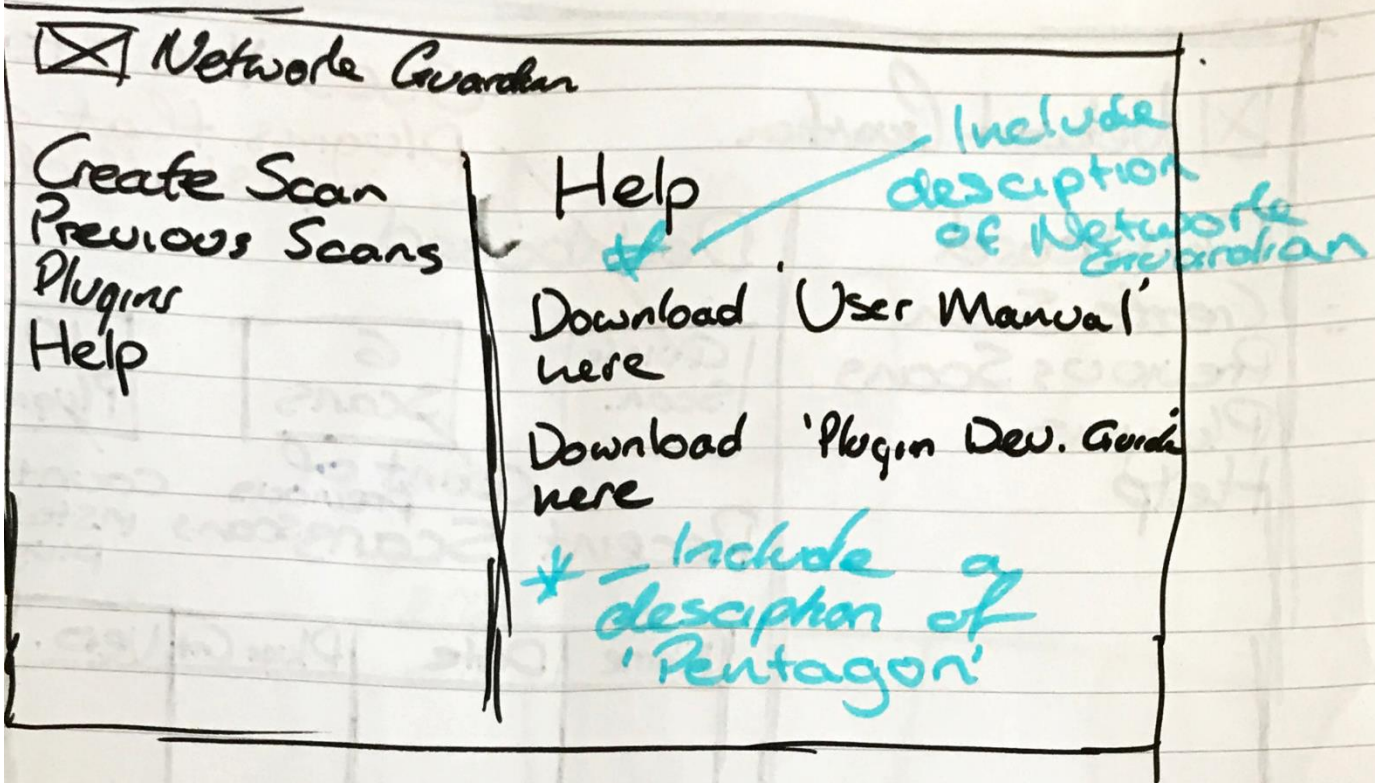 Network Guardian
Create Scan
Previous Scans
Plugins
Help
Help
* Include
desciption
of Network
Guardian
Download 'User Manual'
here
Download 'Plugin Dev. Guide'
here
* – Include a
desciption of
'Pentagon'